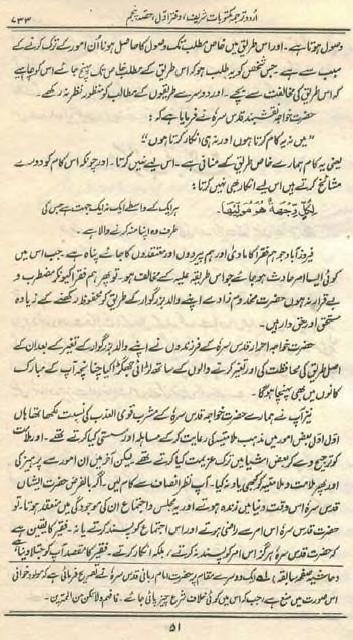 اُردو ترجمہ مکتوبات شریف، دفتر اوّل، حصہ پنجم ۷۳۳
وصول ہوتا ہے۔ اور اس طریق میں خاص مطلب تک وصول کا حاصل ہونا اُن امور کے ترک کرنے کے
سبب سے ہے جس شخص کو یہ طلب ہو کہ اس طریق کے مطلب خاص تک پہنچ جائے اس کو چاہیے
کہ اس طریق کی مخالفت سے بچے۔ اور دوسرے طریقوں کے مطالب کو منظورِ نظر نہ رکھے۔
حضرت خواجہ نقشبند قدس سرہ نے فرمایا ہے کہ:
"میں نہ یہ کام کرتا ہوں اور نہ ہی انکار کرتا ہوں"
یعنی یہ کام ہمارے خاص طریق کے منافی ہے۔ اس لیے نہیں کرتا۔ اور چونکہ اس کام کو دوسرے
مشائخ کرتے ہیں اس لیے انکار بھی نہیں کرتا:
لِكُلٍّ وِّجْهَةٌ هُوَ مُوَلِّيْهَا۔ ہر ایک کے واسطے ایک نہ ایک جہت ہے جس کی
طرف وہ اپنا منہ کرنے والا ہے۔
فیروز آباد جو ہم فقرا کا ماویٰ اور ہم پیروں اور معتقدوں کا جائے پناہ ہے جب اس میں
کوئی ایسا امر حادث ہو جائے جو اس طریقہ علیہ کے مخالف ہو۔ تو پھر ہم فقرا کیونکر مضطرب و
بے قرار نہ ہوں حضرت مخدوم زادے اپنے والد بزرگوار کے طریق کو محفوظ رکھنے کے زیادہ
مستحق اور حق دار ہیں۔
حضرت خواجہ احرار قدس سرہ کے فرزندوں نے اپنے والد بزرگوار کے تغیر کے بعد ان کے
اصل طریق کی محافظت کی اور تغیر کرنے والوں کے ساتھ لڑائی جھگڑا کیا چنانچہ آپ کے مبارک
کانوں میں بھی پہنچا ہوگا۔
نیز آپ نے ہمارے حضرت خواجہ قدس سرہ کے مشرب قوی العذب کی نسبت لکھا تھا ہاں
اول اول بعض امور میں مذہب ملامتیہ کی رعایت کر کے مساہلہ اور سستی کیا کرتے تھے۔ اور ملامت
کو ترجیح دے کر بعض اشیا میں ترک عزیمت کیا کرتے تھے لیکن آخر میں ان امور سے پرہیز کی
اور پھر ملامت و ملامتیہ کو کبھی یاد نہ کیا۔ آپ نظر انصاف سے کام لیں۔ اگر بالفرض حضرت ایشاں
قدس سرہ اس وقت دنیا میں زندہ ہوتے اور یہ مجلس و اجتماع ان کی موجودگی میں منعقد ہوتا۔ تو
حضرت قدس سرہ اس امر سے راضی ہوتے اور اس اجتماع کو پسند کرتے یا نہ۔ فقیر کا یقین ہے
کہ حضرت قدس سرہ ہرگز اس امر کو پسند نہ کرتے۔ بلکہ انکار کرتے۔ فقیر کا مقصد آپ کو جتلا دینا ہے
ایک دوسرے مقام پر حضرت امام ربانی قدس سرہ نے تصریح فرمائی ہے کہ مولود خوانی
اس صورت میں منع ہے جب کہ اس میں کوئی خلافِ شرع چیز پائی جائے۔ فافہم ولا تکن من الممترین۔
۵۱